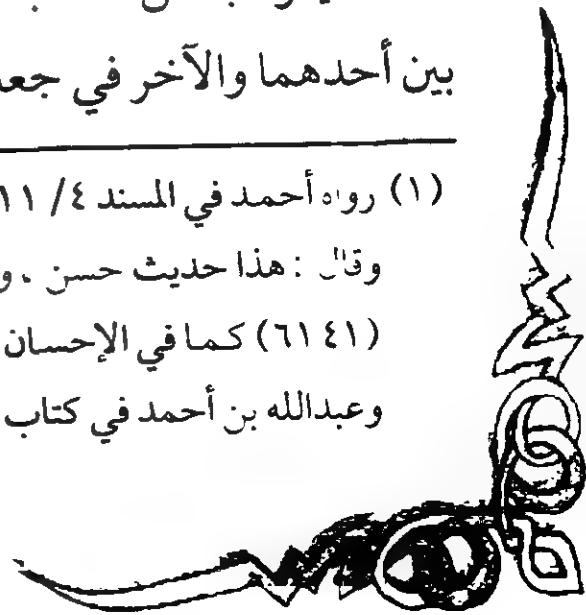 بين أحدهما والآخر في
(١) رواه أحمد في المسند ٤/ ١١
وقال : هذا حديث حسن . و
(٦١٤١) كما في الإحسان
وعبدالله بن أحمد في كتاب